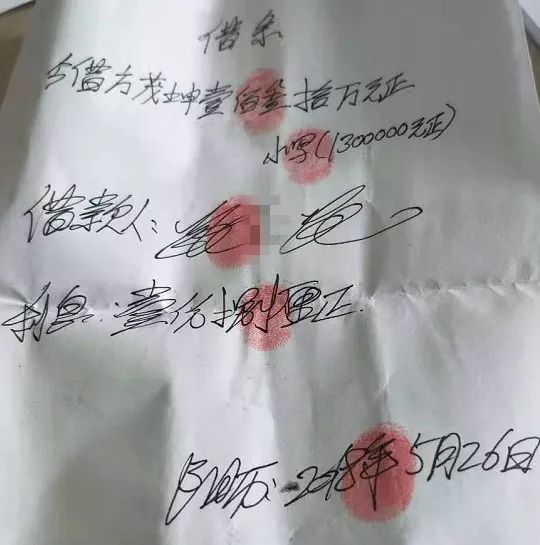 借条
今借方茂坤壹佰叁拾万元正
小写(1300000元正)
借款人:
利息:壹分捌厘正.
阳历:2018年5月26日